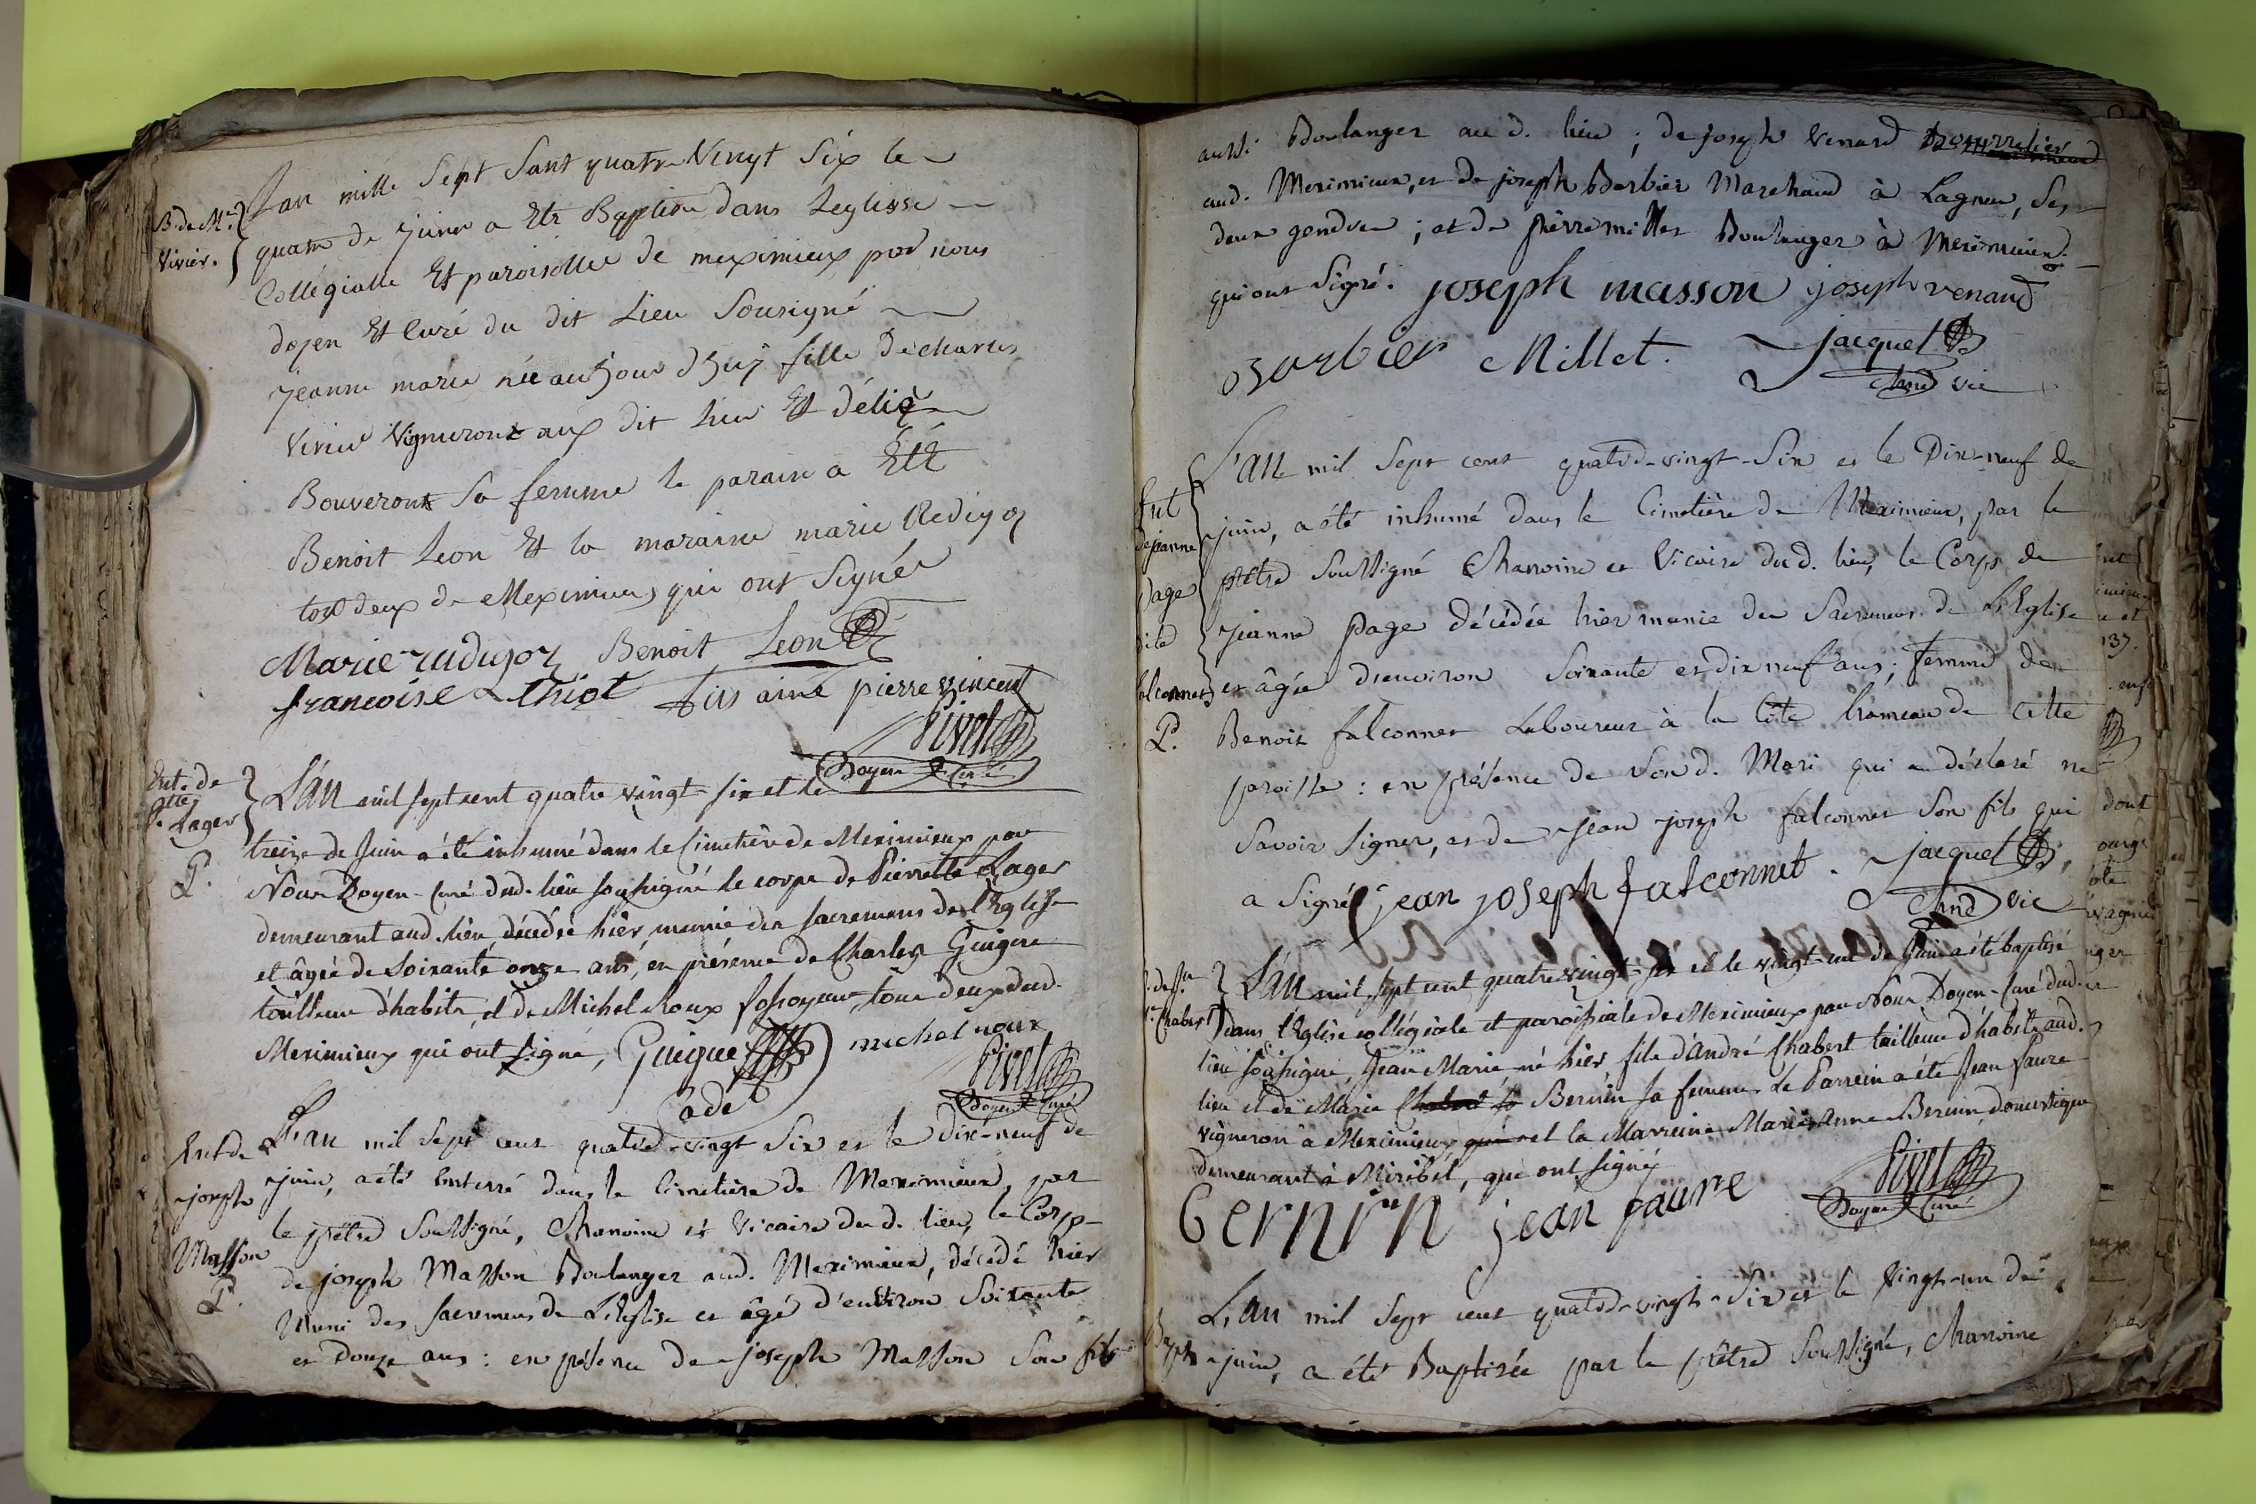 B. de Me.
Vivier.
Lan mille Sept Sant quatre Vingt Six le
quatre de juin a Ete Baptisée dans leglisse
Collégialle Et paroisialle de meximieux par nous
dojen Et Curé du dit Lieu Sousigné
jeanne marie née aujourd'huy fille de charles
Vivier Vigneront aux dit Lieu Et délie
Bouveront Sa femme le parain a Eté
Benoit Leon Et la maraine marie Redigoz
tout deux de Meximieux qui ont Signée
Marie rudigoz Benoit Leon
francoise Thiot fils ainé pierre vincent
Pivet
Doyen & Curé
Ent. de
Ptte.
Lager
P.
L'an mil sept cent quatre vingt six et le
treize de Juin a été inhumé dans le Cimetière de Meximieux par
Nous Doyen-Curé dud. lieu soussigné le corps de Pierrette Lager
demeurant aud. lieu, décédée hier, munie des sacremens de l'Eglise
et âgée de soixante onze ans, en présence de Charles Guigue
tailleur d'habits, et de Michel Roux fossoyeur, tous deux dud.
Meximieux qui ont signé, Guigue michel roux
Pivet
Doyen & Curé
Ent de
joseph
Masson
P.
L'an mil Sept cent quatre-vingt Six et le dix-neuf de
juin, a été Enterré dans le Cimetière de Meximieux, par
le prêtre Soussigné, Chanoine et Vicaire dud. lieu, le Corps
de joseph Masson Boulanger aud. Meximieux, décédé hier
Muni des Sacremens de L'Eglise et âgé d'environ Soixante
et Douze ans : en présence de joseph Masson Son fils
aussi Boulanger aud. lieu ; de joseph Venard Bourrelier
aud. Meximieux, et de joseph Barbier Marchand à Lagneu, Ses
deux gendres ; et de pierre millet Boulanger à Meximieux
qui ont Signé. joseph masson joseph venard
Barbier Millet. jacquet
Chne vic
Ent
de jeanne
page
falconnet
P.
L'an mil Sept cent quatre-vingt-Six et le Dix-neuf de
juin, a été inhumé dans le Cimetière de Meximieux, par le
prêtre Soussigné Chanoine et Vicaire dud. lieu, le Corps de
jeanne page décédée hier munie des Sacremens de L'Eglise
et âgée d'environ Soixante et dix neuf ans ; femme de
Benoit falconnet Laboureur à la Côte hameau de Cette
proisse : en présence de Son d. Mari qui a déclaré ne
Savoir Signer, et de jean joseph falconnet Son fils qui
a Signé jean joseph falconnet . jacquet
Chne vic
B. de Jn
Me. Chabert
L'an mil sept cent quatre vingt six et le vingt un de Juin a été baptisé
dans l'Eglise collégiale et paroissiale de Meximieux par Nous Doyen-Curé dud.
lieu soussigné, Jean Marie né hier, fils d'André Chabert tailleur d'habits aud.
lieu et de Marie Chabert sa Bernin sa femme, le Parrein a été Jean Faure
vigneron à Meximieux qui et la Marreine Marie Anne Bernin, domestique
demeurant à Miribel, qui ont signé
bernin jean faure Pivet
Doyen & Curé
Bapt
L'an mil Sept cent quatre-vingt-Six et le Vingt-un de
juin, a été Baptisée par le prêtre Soussigné, Chanoine